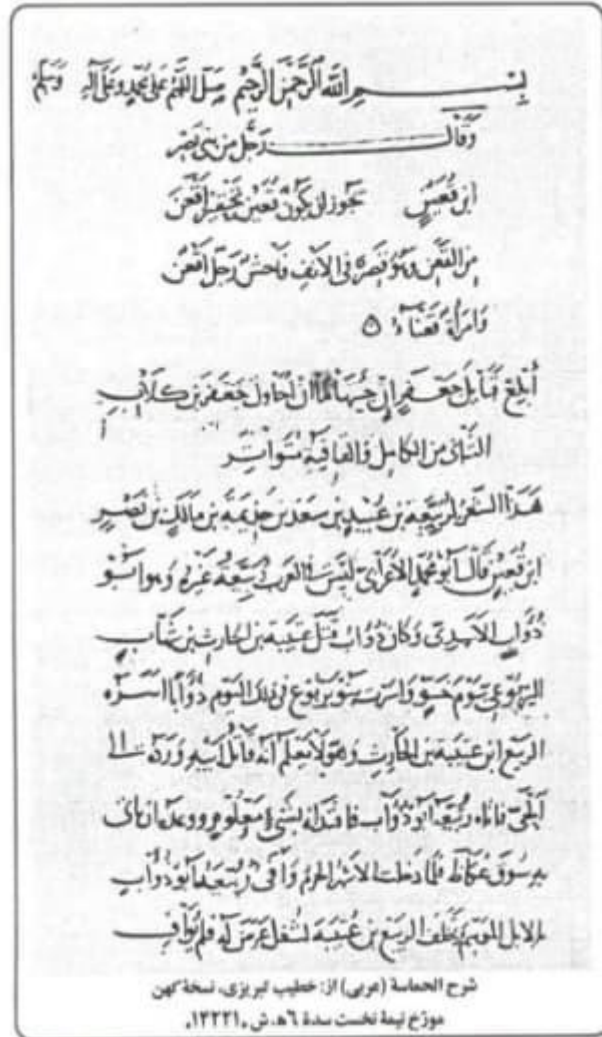 بسم الله الرحمن الرحيم صل اللهم على محمد وعلى آله وسلم
وقال رجل من بني نصر
ابن قعين يجوز ان يكون قعين تحقير اقعن
من القعن وهو قصر في الانف فاحش رجل اقعن
وامرأة قعناء ۵
أبلغ قبائل جعفر إن جئتها ما ان أحاول جعفر بن كلاب
الثاني من الكامل والقافية متواتر
هذا الشعر لربيعة بن عبيد بن سعد بن جذيمة بن مالك بن نصر
ابن قعين قال ابو محمد الأعرابي ليس في العرب ربيعة غيره وهو ابو
ذؤاب الاسدي وكان ذؤاب قتل عتيبة بن الحارث بن شهاب
اليربوعي يوم خو وأسرت بنو يربوع في ذلك اليوم ذؤابا أسره
الربيع ابن عتيبة بن الحارث وهو لا يعلم أنه قاتل أبيه ورده الى
الحي فاتاه ربيعة ابو ذؤاب فافتداه بشيء معلوم ووعده ان ياتي
به سوق عكاظ فلما دخلت الاشهر الحرم وافى ربيعة ابو ذؤاب
بالابل الموسم وتخلف الربيع بن عتيبة لشغل عرض له فلم يواف
شرح الحماسة (عربی) از: خطیب تبریزی، نسخهٔ کهن
مورّخ نیمهٔ نخست سدهٔ ٦ه‍.ش «١٣٢٢١»